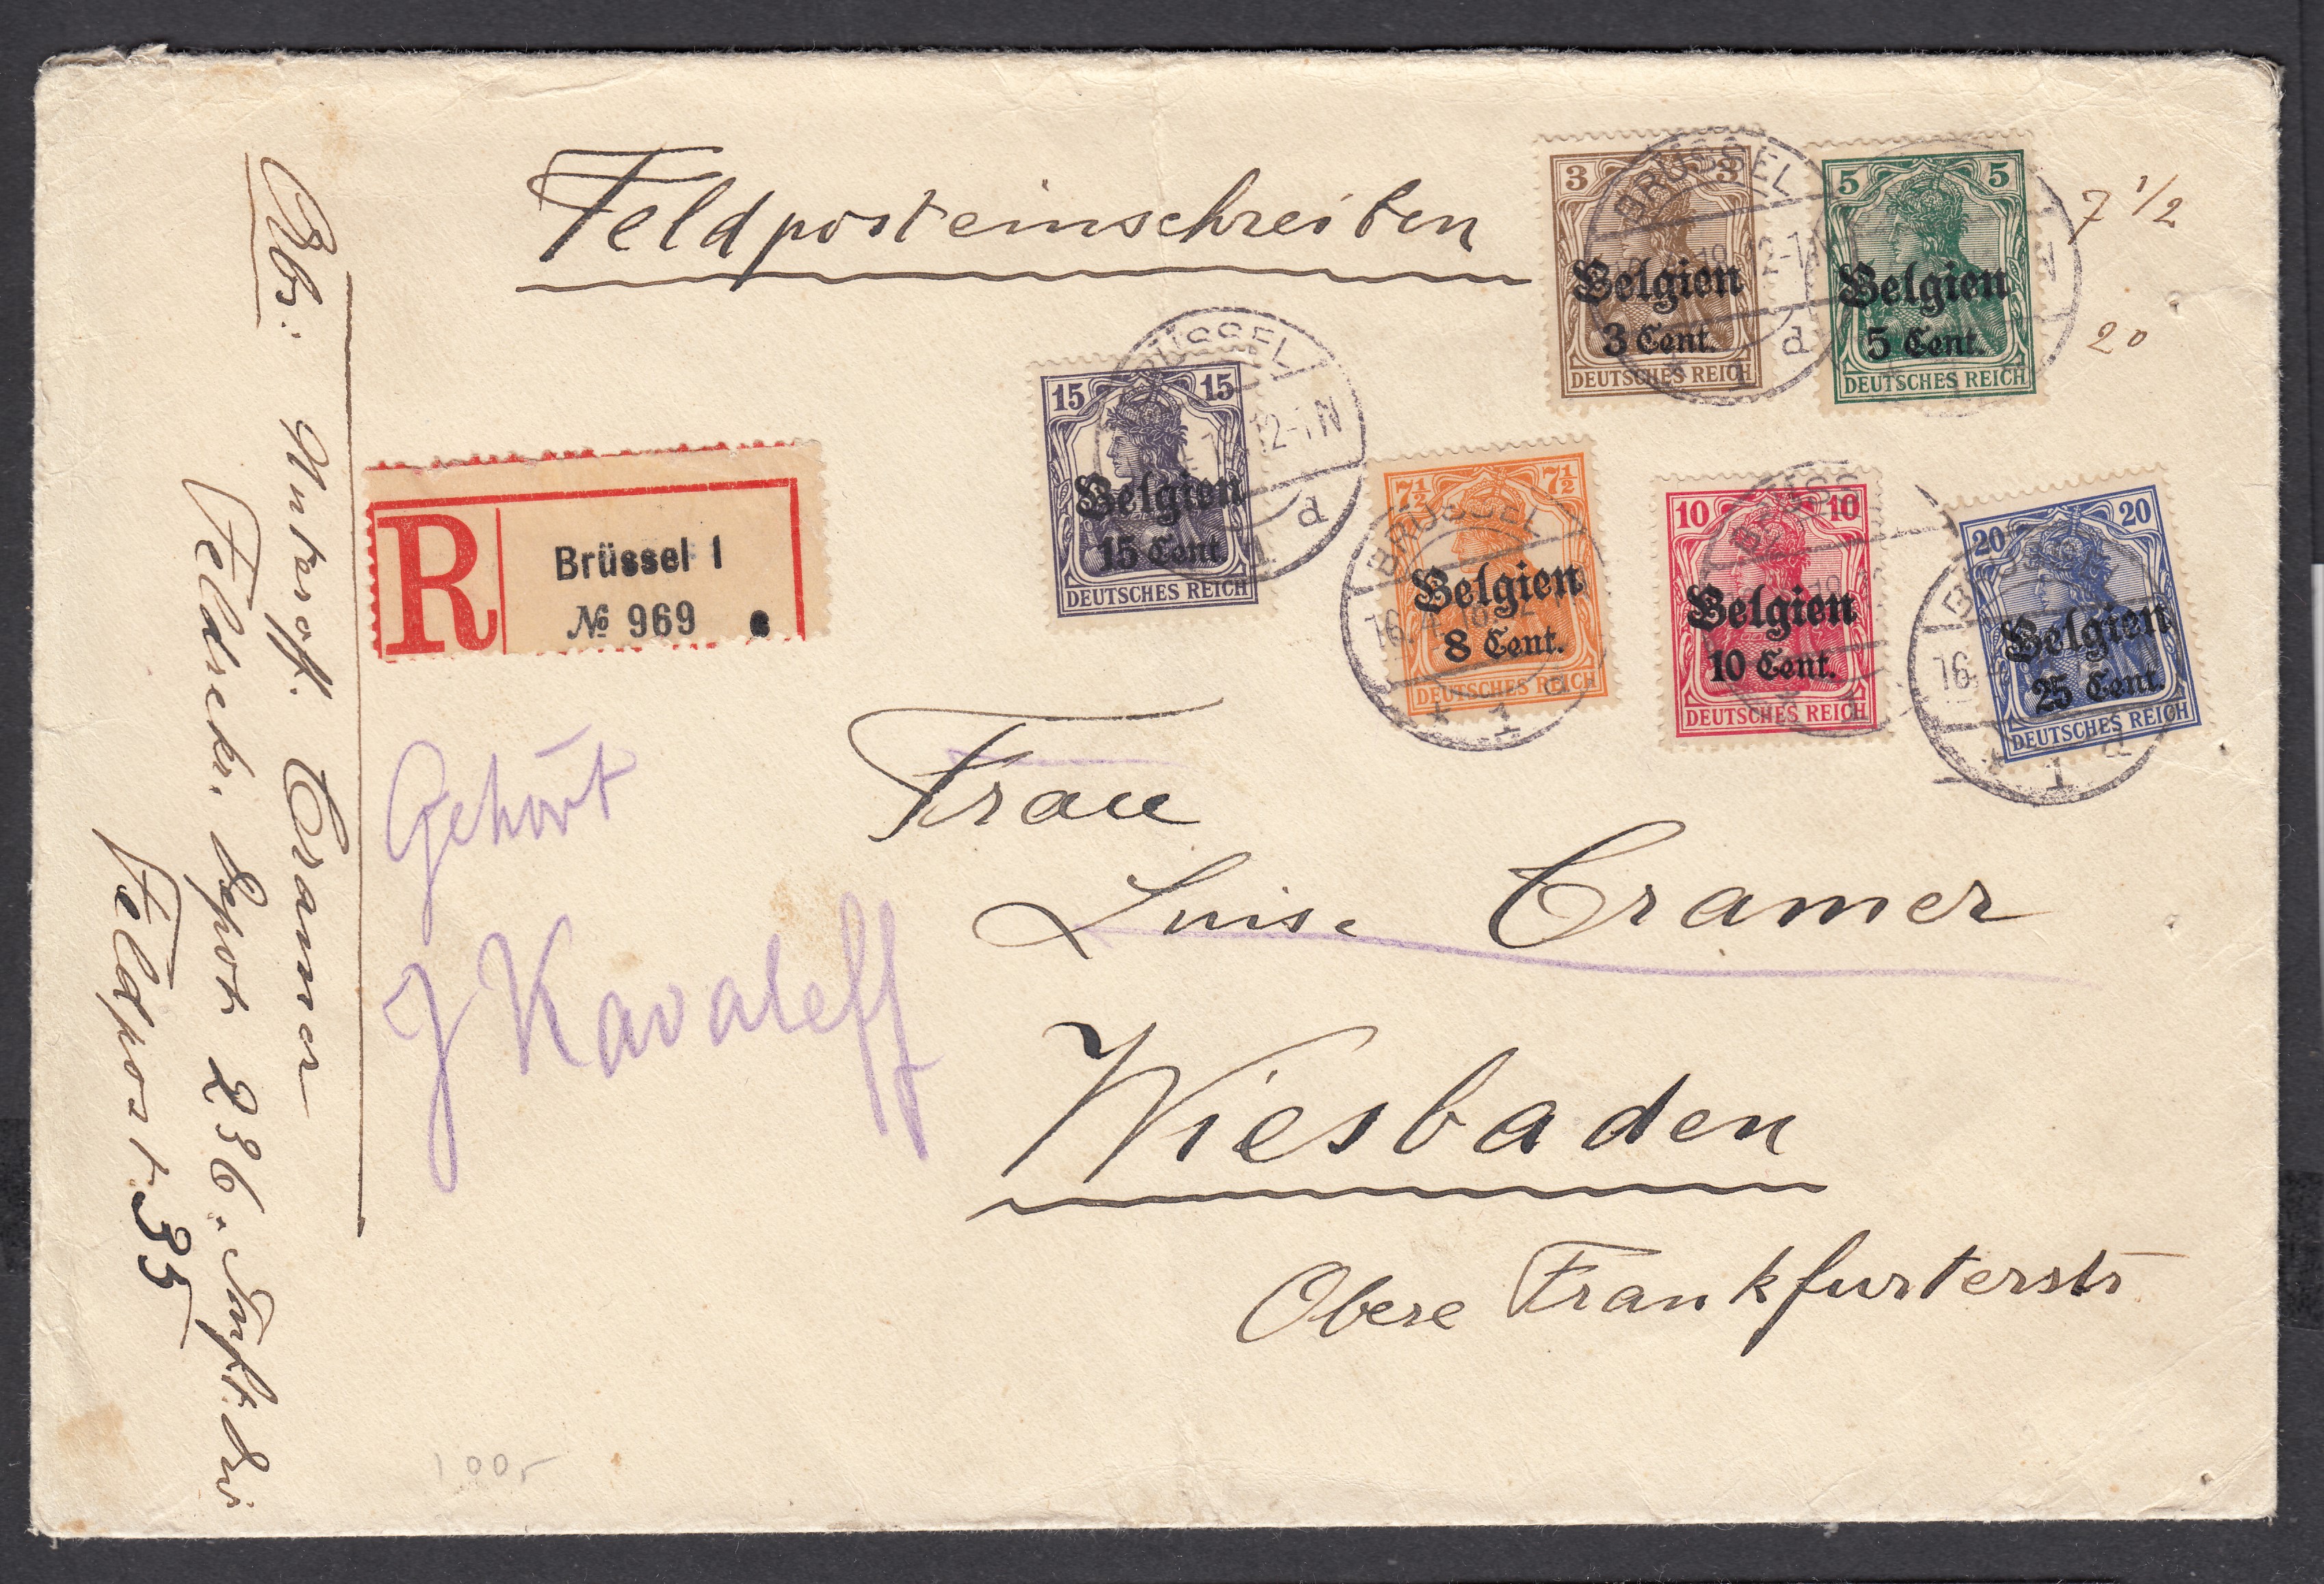 Feldposteinschreiben
3 3
Belgien
3 Cent.
DEUTSCHES REICH
BRÜSSEL
12-1N
d
5 5
Belgien
5 Cent.
DEUTSCHES REICH
7 1/2
20
15 15
Belgien
15 Cent
DEUTSCHES REICH
BRÜSSEL
12-1N
d
7½ 7½
Belgien
8 Cent.
DEUTSCHES REICH
BRÜSSEL
16.4.18
* 1 d
10 10
Belgien
10 Cent.
DEUTSCHES REICH
20 20
Belgien
25 Cent.
DEUTSCHES REICH
16.
* 1 d
R
Brüssel 1
№ 969
Frau
Luise Cramer
Wiesbaden
Obere Frankfurterstr
Gehört
J Kavaleff
Abs: Unteroff. Cramer
Feldrekr. Depot 236. Inft. Div
Feldpost. 35
100,-